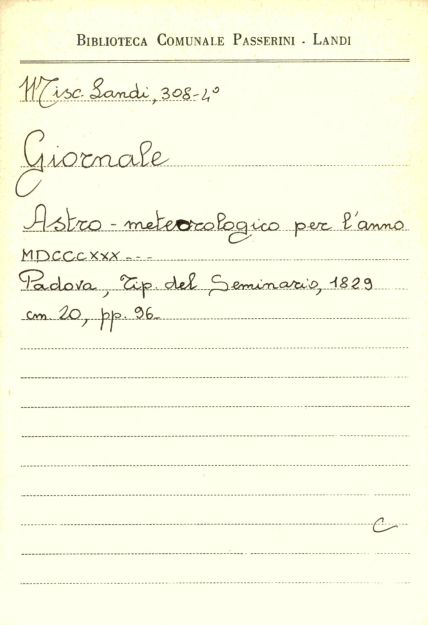 BIBLIOTECA COMUNALE PASSERINI - LANDI
Misc. Landi, 308-4°
Giornale
Astro-meteorologico per l'anno
MDCCCXXX---
Padova, Tip. del Seminario, 1829
cm. 20, pp. 96-
C